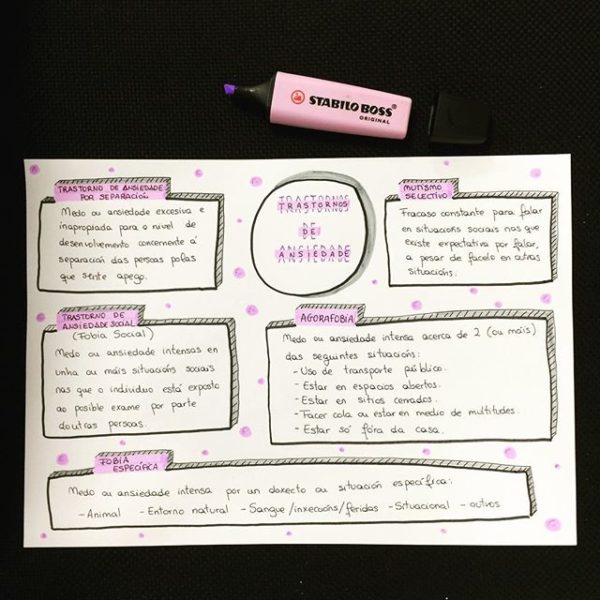 STABILO BOSS®
ORIGINAL
TRASTORNOS
DE
ANSIEDADE
TRASTORNO DE ANSIEDADE
POR SEPARACIÓN
Medo ou ansiedade excesiva e
inapropiada para o nivel de
desenvolvemento concernente á
separación das persoas polas
que sente apego.
MUTISMO
SELECTIVO
Fracaso constante para falar
en situacións sociais nas que
existe expectativa por falar,
a pesar de facelo en outras
situacións.
TRASTORNO DE
ANSIEDADE SOCIAL
(Fobia Social)
Medo ou ansiedade intensas en
unha ou máis situacións sociais
nas que o individuo está exposto
ao posible exame por parte
doutras persoas.
AGORAFOBIA
Medo ou ansiedade intensa acerca de 2 (ou máis)
das seguintes situacións:
- Uso de transporte público.
- Estar en espacios abertos.
- Estar en sitios cerrados.
- Facer cola ou estar en medio de multitudes.
- Estar só fóra da casa.
FOBIA
ESPECÍFICA
Medo ou ansiedade intensa por un obxecto ou situación específica:
- Animal - Entorno natural - Sangue/inxeccións/feridas - Situacional - outros